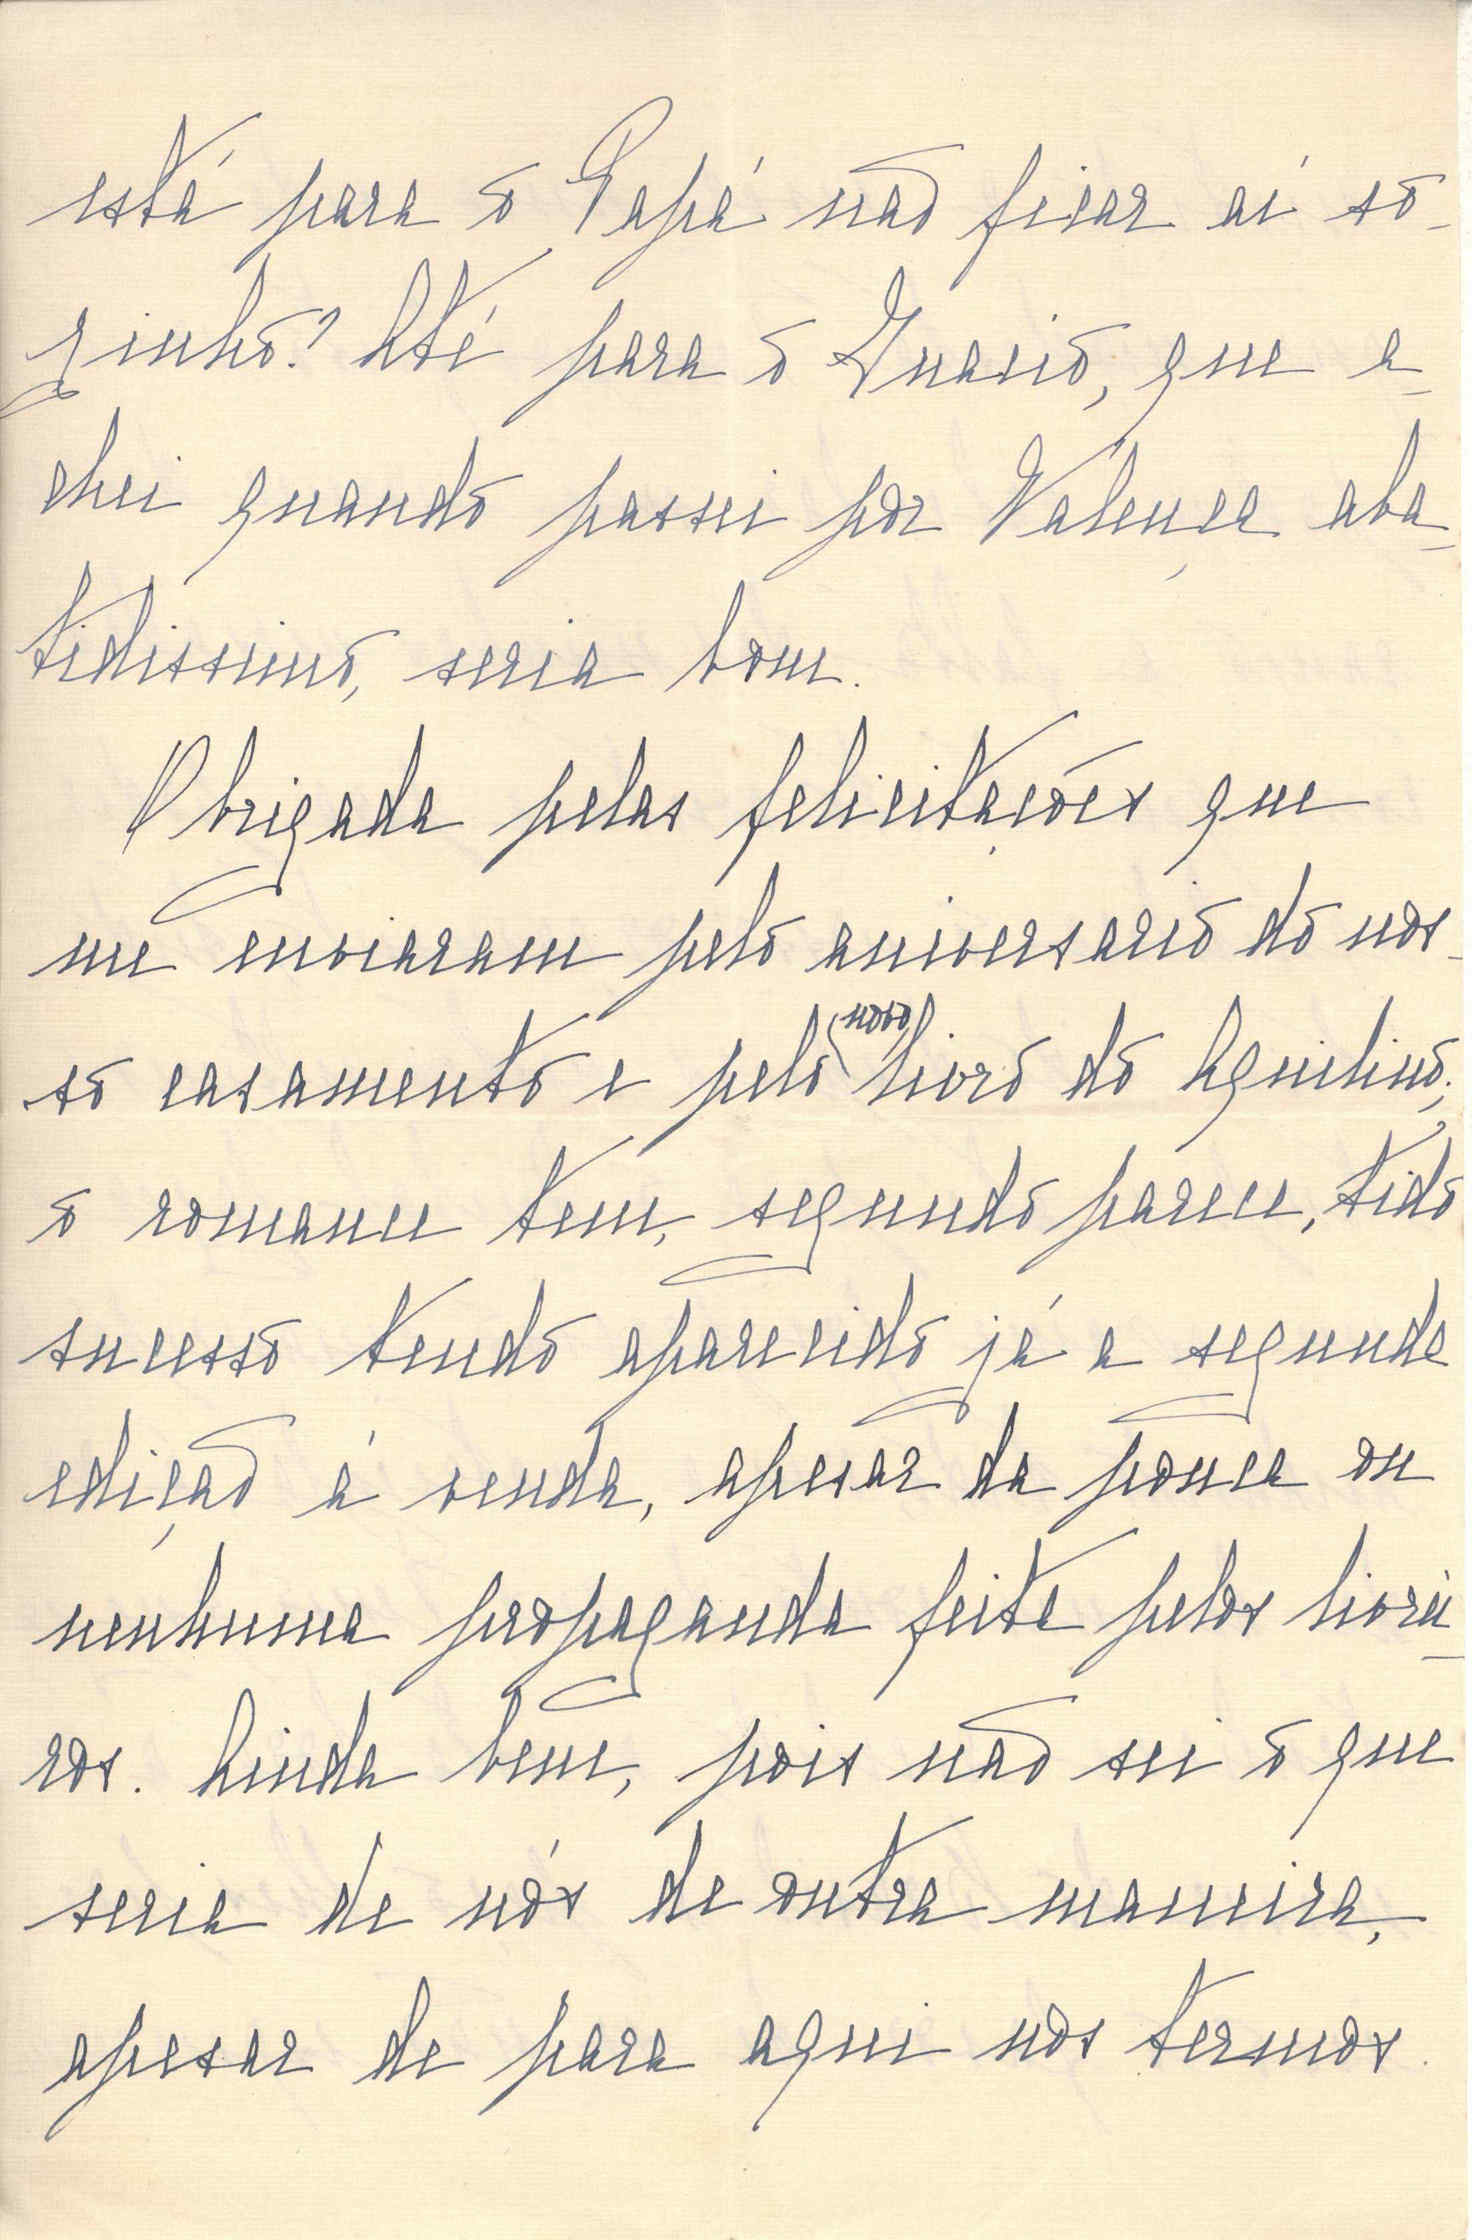 está para o Papá não ficar aí so-
zinho? Até para o Inácio, que a-
chei quando passei por Valença aba-
tidissimo, seria bom.
Obrigada pelas felicitações que
me enviaram pelo aniversario do nos-
so casamento e pelo (novo) livro do Aquilino;
o romance tem, segundo parece, tido
sucesso tendo aparecido já a segunda
edição á venda, apesar da pouca ou
nenhuma propaganda feita pelos livrei-
ros. Ainda bem, pois não sei o que
seria de nós de outra maneira,
apesar de para aqui nos termos